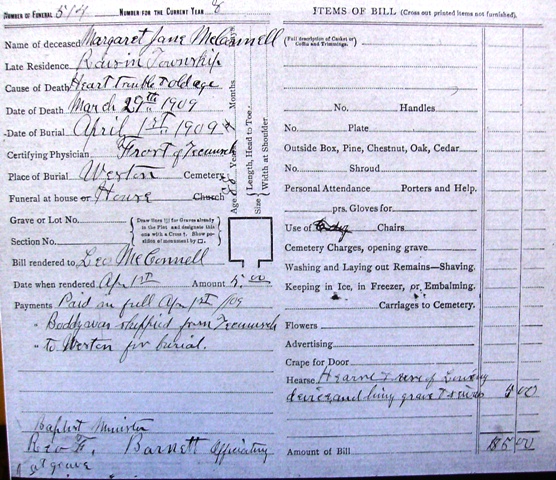 NUMBER OF FUNERAL 514 NUMBER FOR THE CURRENT YEAR 8
Name of deceased Margaret Jane McConnell
Late Residence Raisin Township
Cause of Death Heart Trouble & old age
Date of Death March 29th 1909
Date of Burial April 1st 1909
Certifying Physician Frost of Tecumseh
Place of Burial Weston Cemetery
Funeral at house or House Church
Grave or Lot No.
Section No.
Draw lines for Graves already
in the Plot and designate this
one with a Cross †. Show po-
sition of monument by □.
Bill rendered to Leo McConnell
Date when rendered Apr 1st Amount 5.00
Payments Paid in full Apr 1st /09
" Boddy was shipped from Tecumseh
" to Weston for burial.
Baptist Minister
Rev F. Barnett Officiating
at grave
Age Years Months Days
Size { Length, Head to Toe
Width at Shoulder
ITEMS OF BILL (Cross out printed items not furnished).
(Full description of Casket or
Coffin and Trimmings.
No. Handles
No. Plate
Outside Box, Pine, Chestnut, Oak, Cedar
No. Shroud
Personal Attendance Porters and Help.
prs. Gloves for
Use of Chairs
Cemetery Charges, opening grave
Washing and Laying out Remains—Shaving.
Keeping in Ice, in Freezer, or Embalming.
Carriages to Cemetery.
Flowers
Advertising
Crape for Door
Hearse Hearse & use of Lowering
device and lining grave 5 00
Amount of Bill $5 00